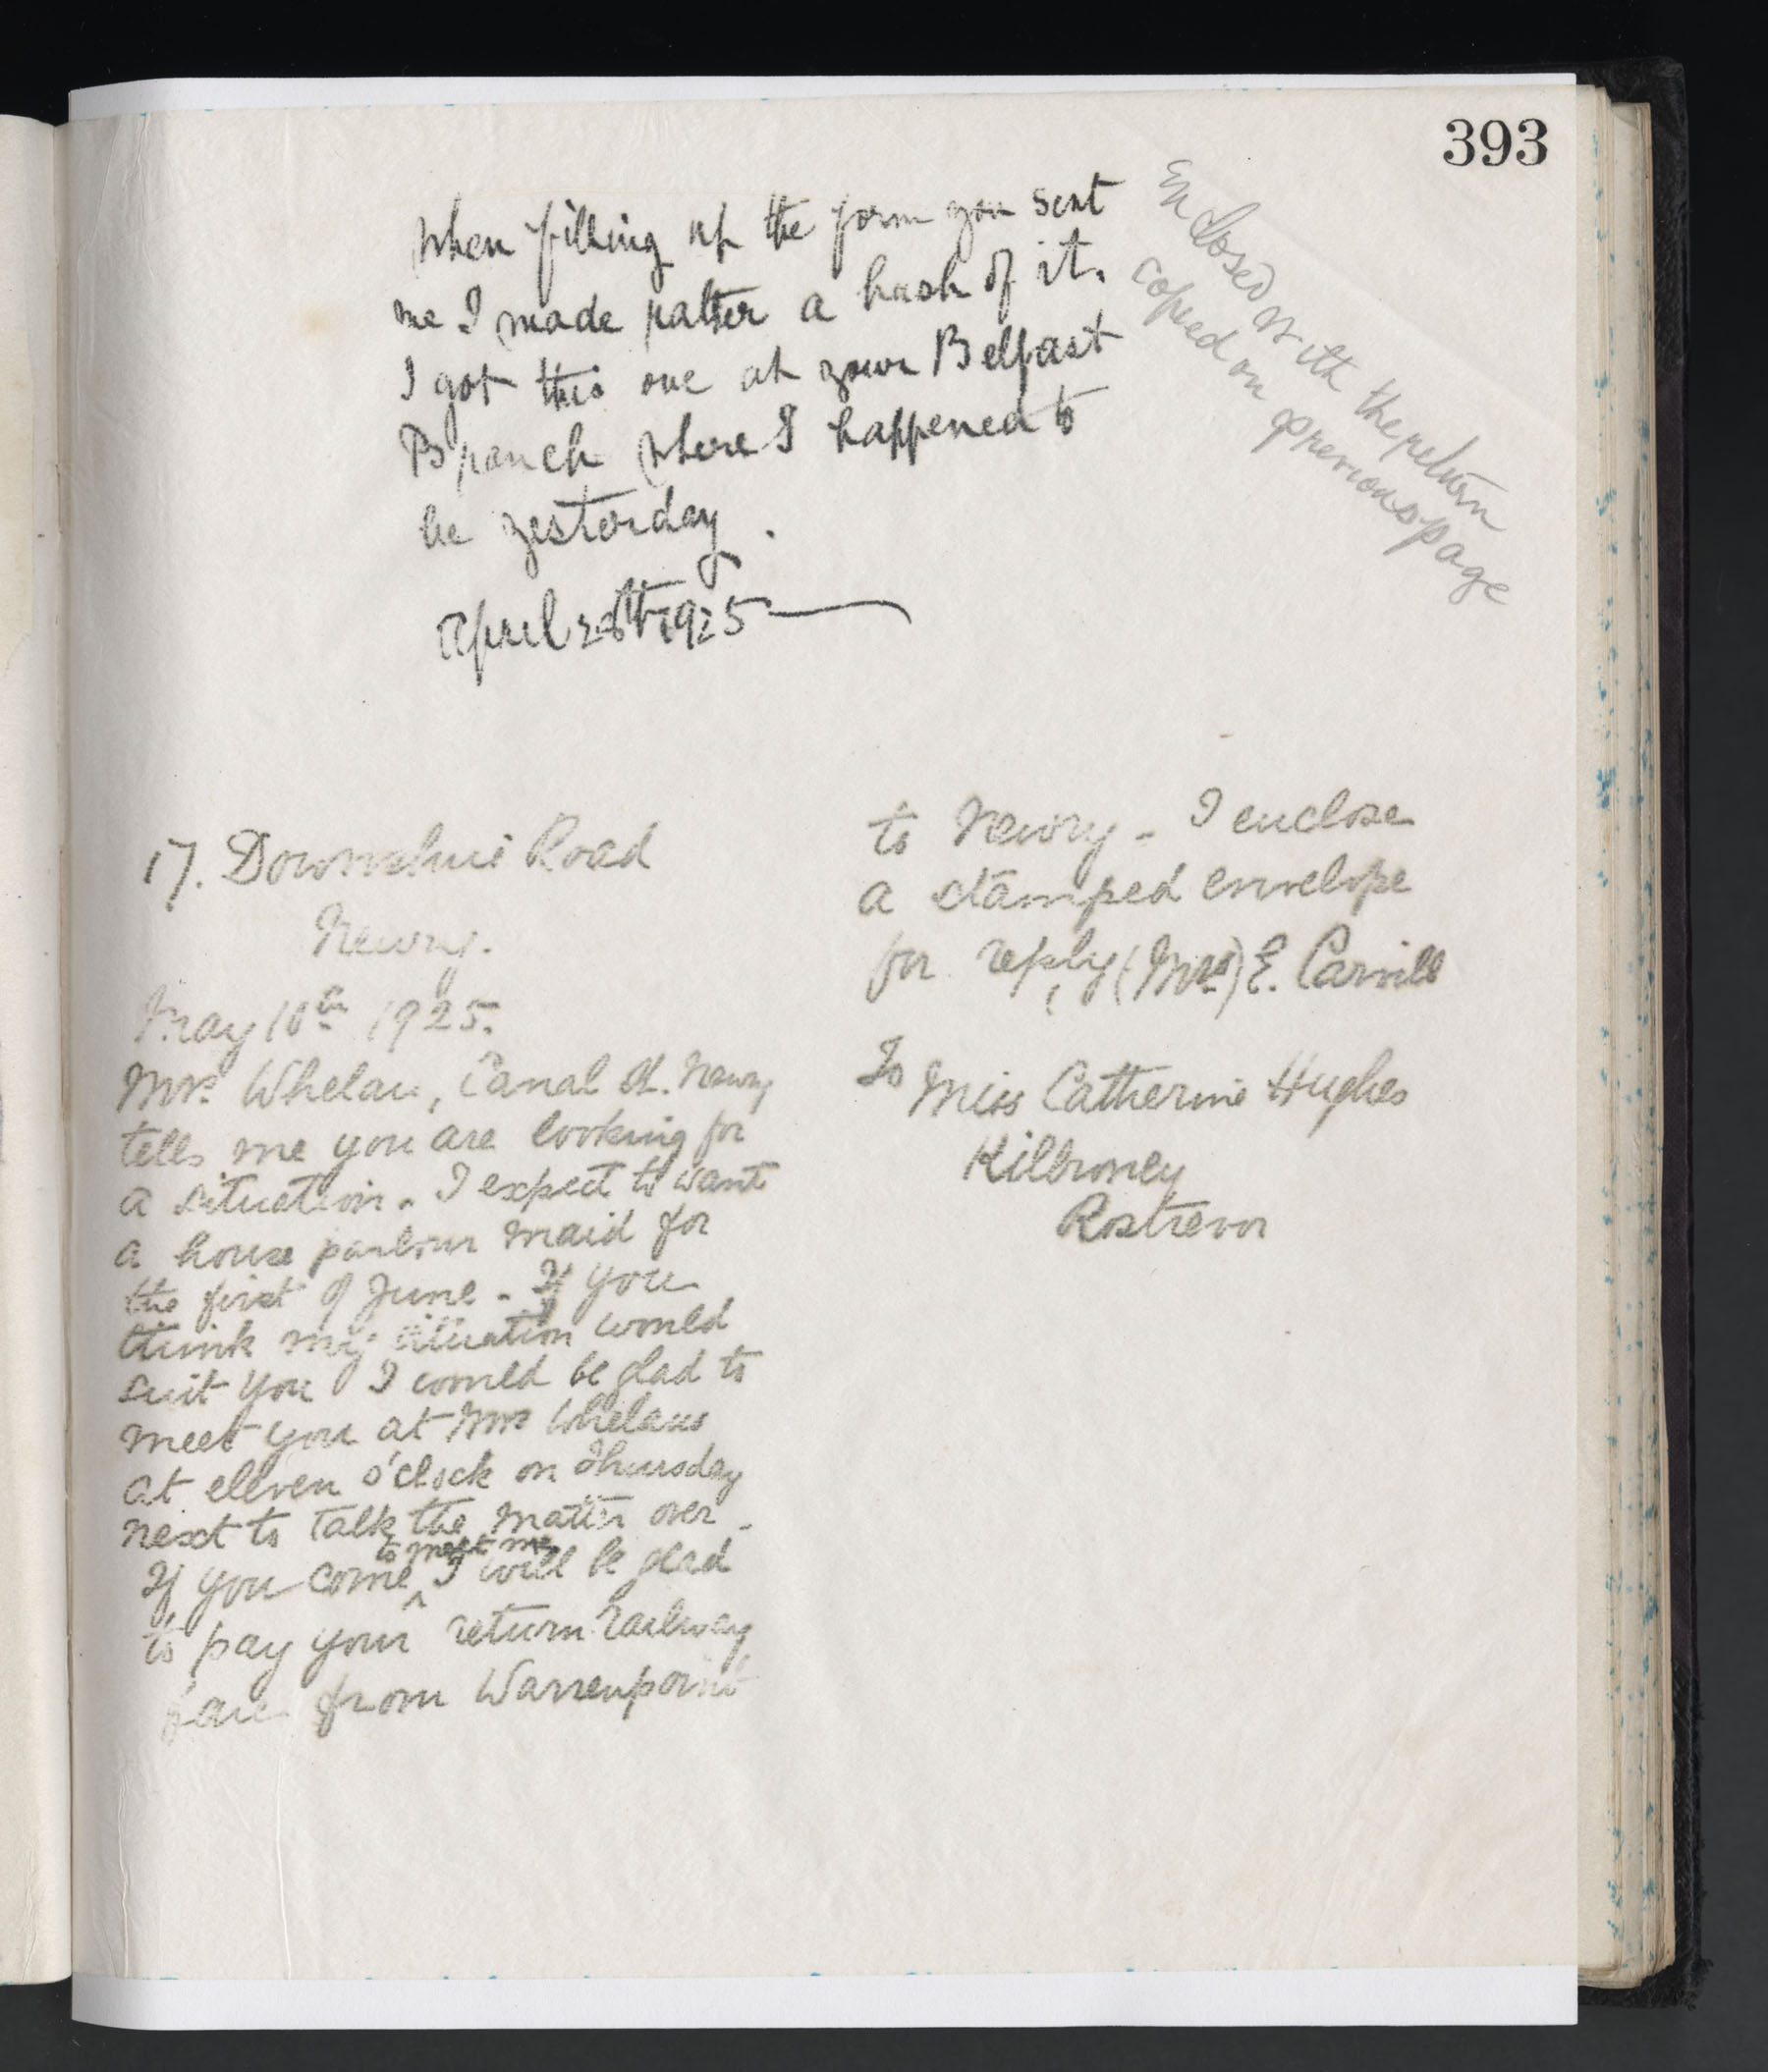 393
When filling up the form you sent
me I made rather a hash of it.
I got this one at your Belfast
Branch where I happened to
be yesterday.
April 28th 1925
Enclosed with the return
copied on previous page
17. Downshire Road
Newry.
May 10th 1925.
Mrs. Whelan, Canal St. Newry
tells me you are looking for
a situation. I expect to want
a house parlour maid for
the first of June - If you
think my situation would
suit you I would be glad to
meet you at Mrs Whelans
at elleven o'clock on Thursday
next to talk the matter over -
to meet me
If you come ^ I will be glad
to pay your return railway
fare from Warrenpoint
to Newry - I enclose
a stamped envelope
for reply (Mrs) E. Carvill
To Miss Catherine Hughes
Kilbroney
Rostrevor